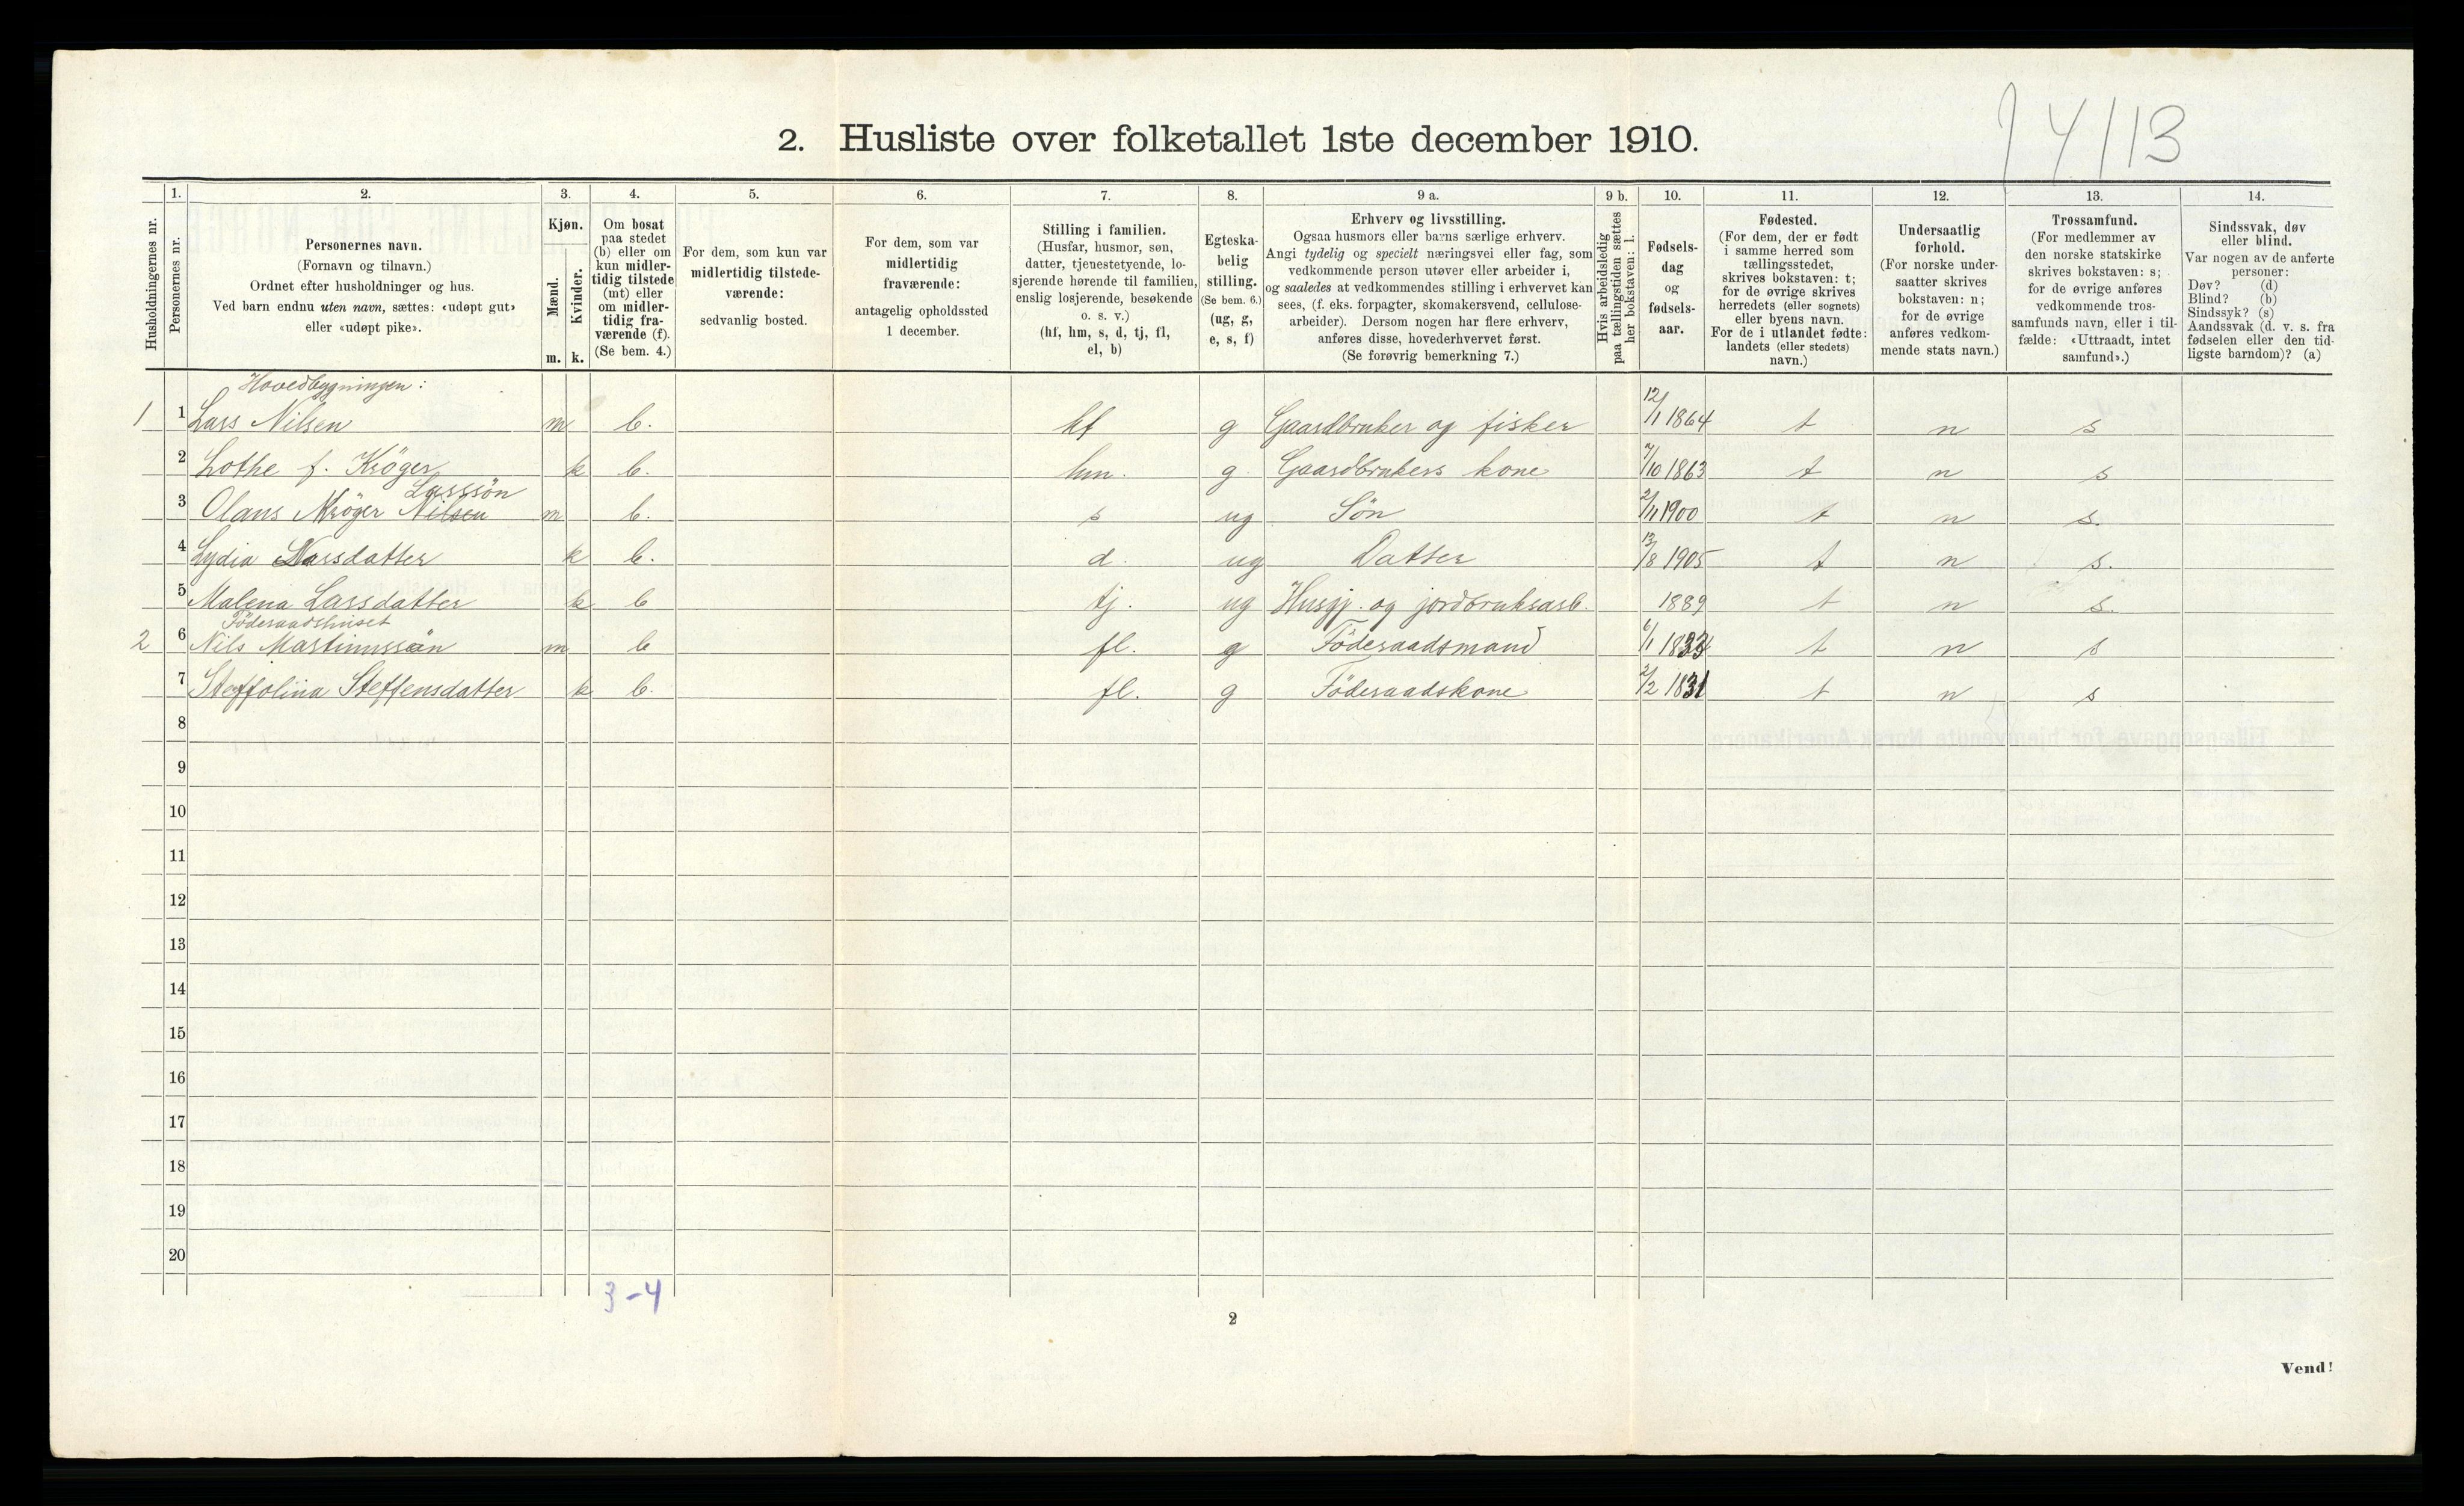 2. Husliste over folketallet 1ste december 1910.
4/13
1. 2. 3. 4. 5. 6. 7. 8. 9 a. 9 b. 10. 11. 12. 13. 14.
Husholdningernes nr.
Personernes nr.
Personernes navn.
(Fornavn og tilnavn.)
Ordnet efter husholdninger og hus.
Ved barn endnu uten navn, sættes: «udøpt gut»
eller «udøpt pike».
Kjøn.
Mænd.
Kvinder.
m. k.
Om bosat
paa stedet
(b) eller om
kun midler-
tidig tilstede
(mt) eller
om midler-
tidig fra-
værende (f).
(Se bem. 4.)
For dem, som kun var
midlertidig tilstede-
værende:
sedvanlig bosted.
For dem, som var
midlertidig
fraværende:
antagelig opholdssted
1 december.
Stilling i familien.
(Husfar, husmor, søn,
datter, tjenestetyende, lo-
sjerende hørende til familien,
enslig losjerende, besøkende
o. s. v.)
(hf, hm, s, d, tj, fl,
el, b)
Egteska-
belig
stilling.
(Se bem. 6.)
(ug, g,
e, s, f)
Erhverv og livsstilling.
Ogsaa husmors eller barns særlige erhverv.
Angi tydelig og specielt næringsvei eller fag, som
vedkommende person utøver eller arbeider i,
og saaledes at vedkommendes stilling i erhvervet kan
sees, (f. eks. forpagter, skomakersvend, cellulose-
arbeider). Dersom nogen har flere erhverv,
anføres disse, hovederhvervet først.
(Se forøvrig bemerkning 7.)
Hvis arbeidsledig
paa tællingstiden sættes
her bokstaven: l.
Fødsels-
dag
og
fødsels-
aar.
Fødested.
(For dem, der er født
i samme herred som
tællingsstedet,
skrives bokstaven: t;
for de øvrige skrives
herredets (eller sognets)
eller byens navn.
For de i utlandet fødte:
landets (eller stedets)
navn.)
Undersaatlig
forhold.
(For norske under-
saatter skrives
bokstaven: n;
for de øvrige
anføres vedkom-
mende stats navn.)
Trossamfund.
(For medlemmer av
den norske statskirke
skrives bokstaven: s;
for de øvrige anføres
vedkommende tros-
samfunds navn, eller i til-
fælde: «Uttraadt, intet
samfund».)
Sindssvak, døv
eller blind.
Var nogen av de anførte
personer:
Døv? (d)
Blind? (b)
Sindssyk? (s)
Aandssvak (d. v. s. fra
fødselen eller den tid-
ligste barndom)? (a)
Hovedbygningen:
1 1 Lars Nilsen m b. hf g Gaardbruker og fisker 12/1 1864 t n s
2 Lothe f. Kröger k b. hm. g Gaardbrukers kone 7/10 1863 t n s
Larssön
3 Olaus Kröger Nilsen m b. s ug Sön 2/11 1900 t n s.
4 Lydia Larsdatter k b. d. ug Datter 13/8 1905 t n s.
5 Malena Larsdatter k b tj. ug Husgj. og jordbruksarb. 1889 t n s.
Föderaadshuset
2 6 Nils Martinussön m b fl. g Föderaadsmand 6/1 1833 t n s
7 Steffolina Steffensdatter k b. fl. g Föderaadskone 2/2 1831 t n s
8
9
10
11
12
13
14
15
16
17
18
19
20
3-4
2
Vend!